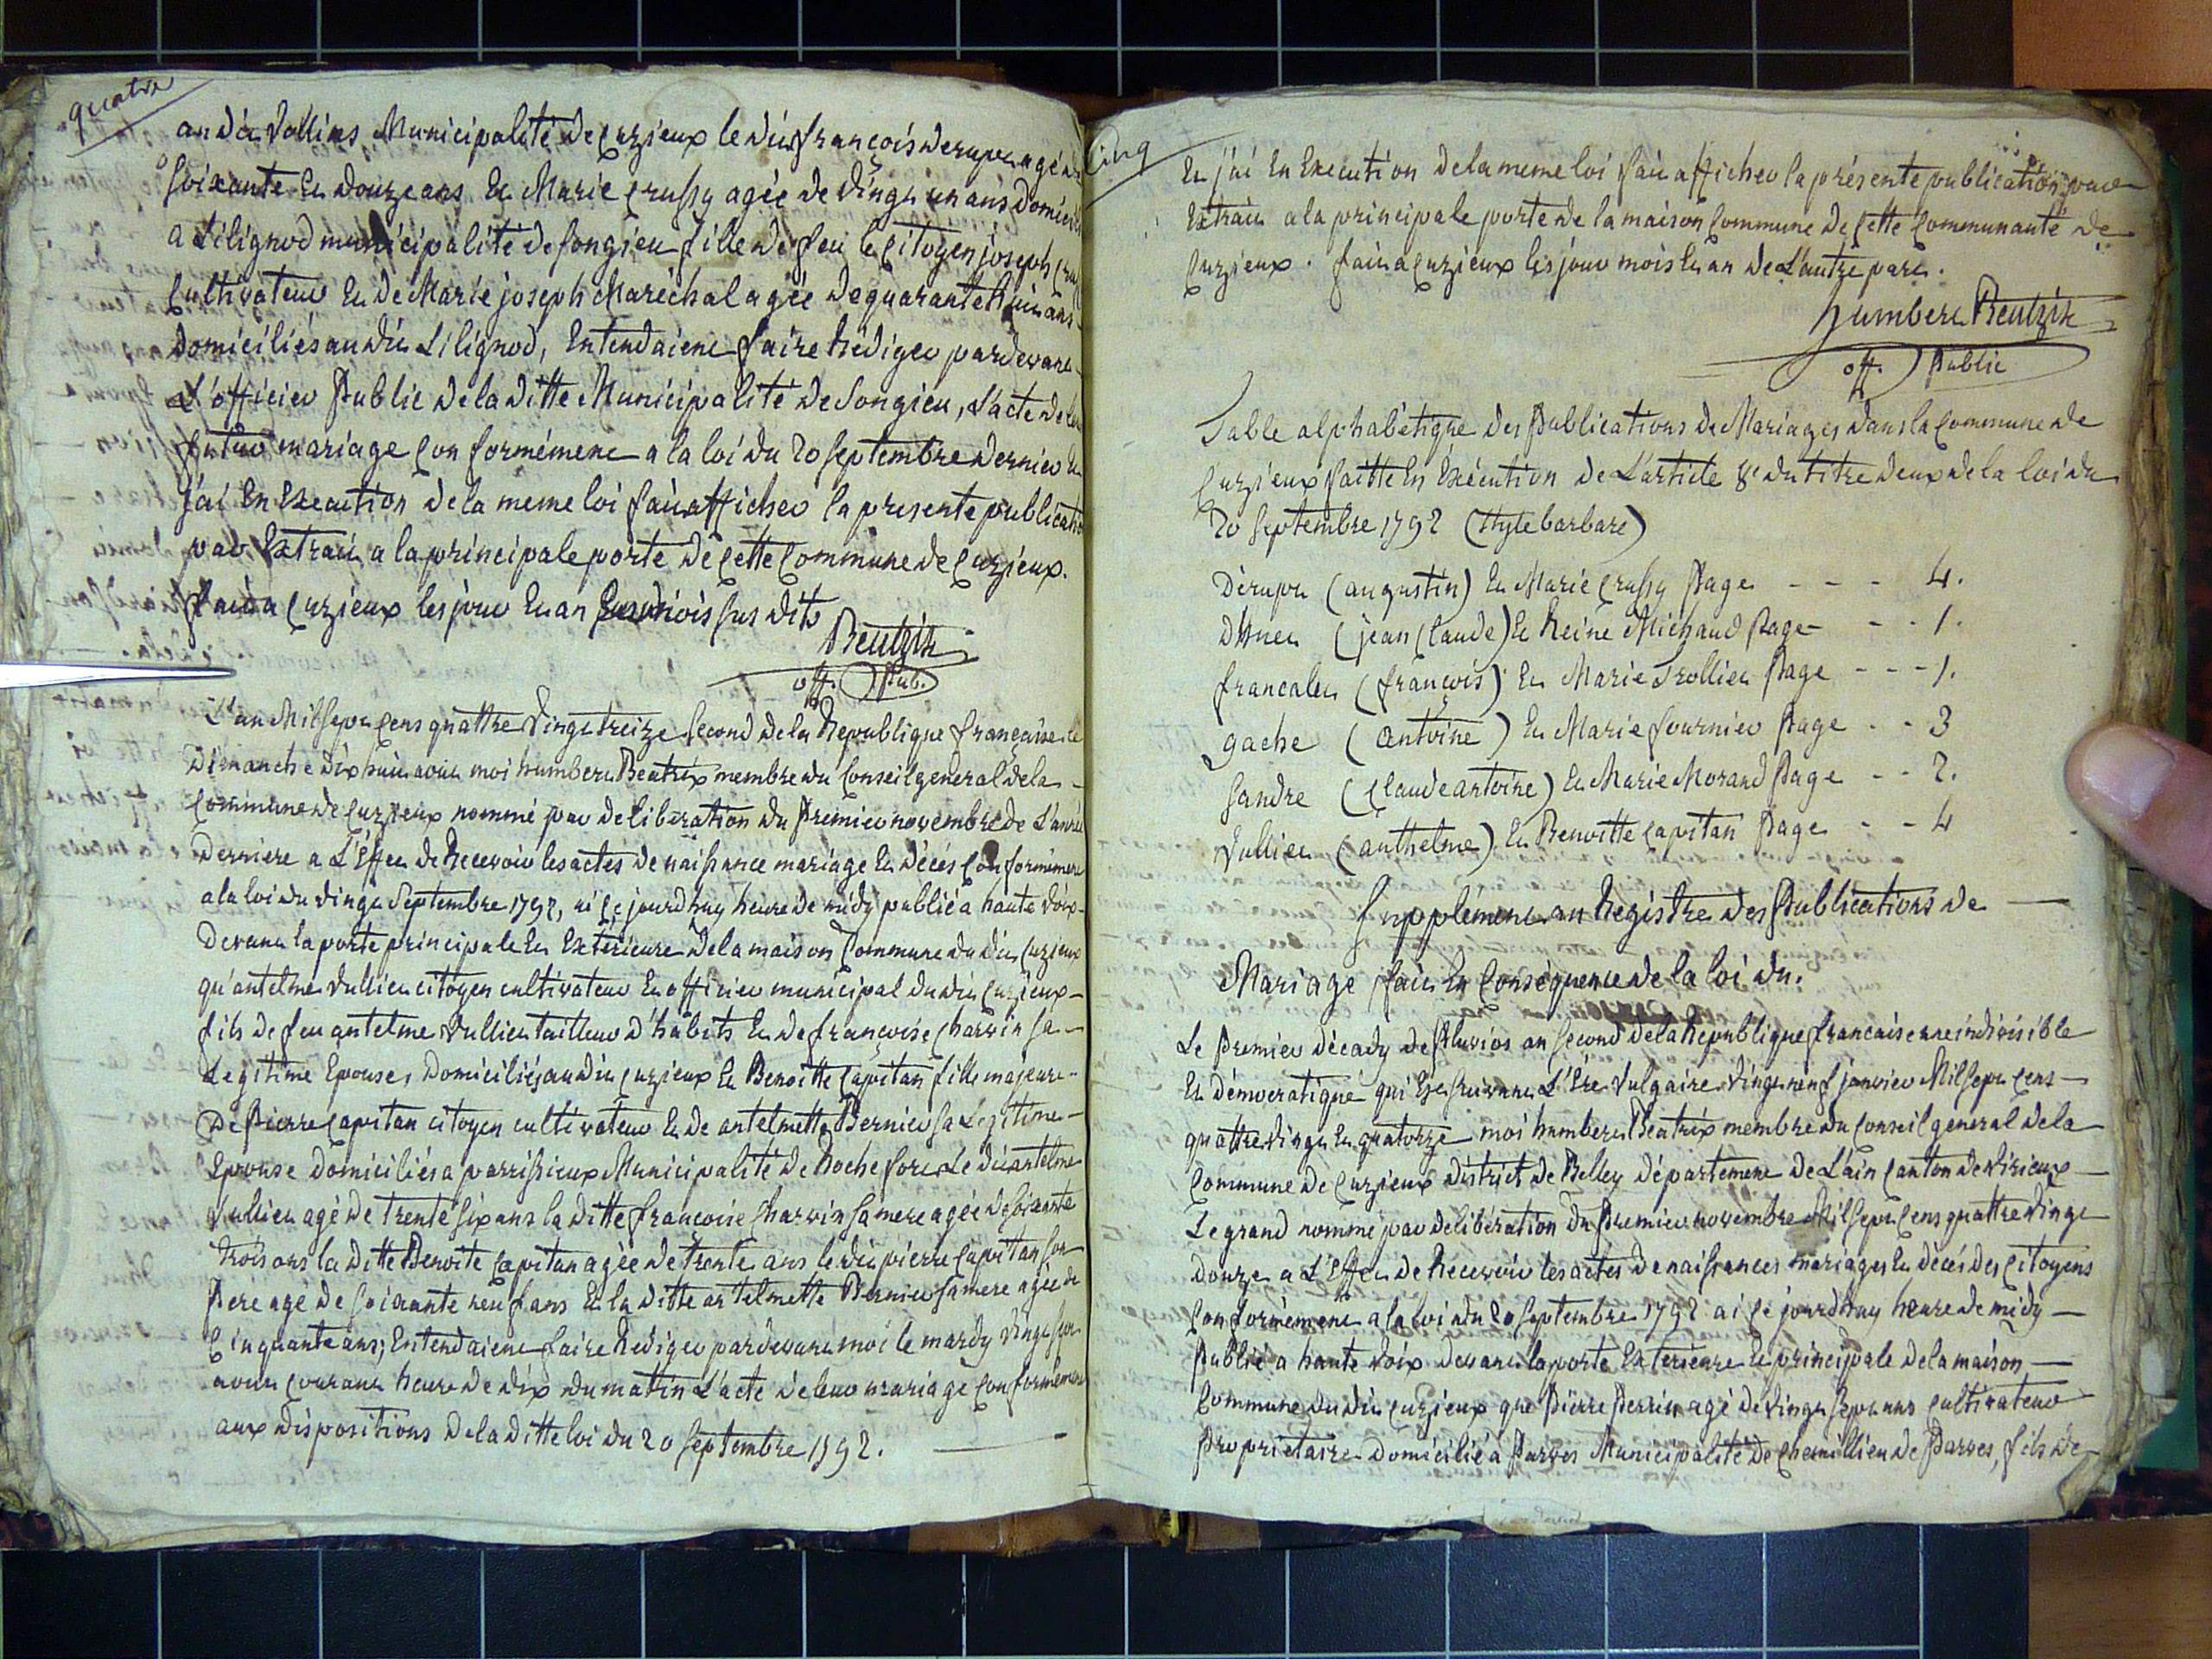 quatre
au dit Vollins Municipalité de Cuzieux le dit françois derupt agé de
soixante et douze ans et Marie crussy agée de vingt un ans domicil
a Lilignod municipalité de songieu fille de feu le Citoyen joseph
Cultivateur et de Marie joseph Maréchal agée de quarante huit ans
domiciliés au dit Lilignod, Entendaient faire Rédiger pardevant
L'officier Public de la ditte Municipalité de Songieu, L'acte de leur
futur mariage Conformément a la loi du 20 Septembre dernier et
j'ai En Execution de la meme loi fait afficher la presente publication
par Extrait a la principale porte de Cette Commune de Cuzieux.
fait a Cuzieux les jour et an mois sus dits
Beatrix
off. Pub.
L'an Mil Sept Cens quattre Vingt treize Second de la Republique française le
Dimanche dix huit aout moi humbert Beatrix membre du Conseil general de la
Commune de Cuzieux nommé par deliberation du Premier novembre de L'année
derniere a L'Effet de Recevoir les actes de naissance mariage et décés Conformément
a la loi du vingt Septembre 1792, ai Ce jourdhuy heure de midy publié a haute Voix
devant la porte principale et Extérieure de la maison Commune du dit Cuzieux
qu'antelme Vulliet citoyen cultivateur et officier municipal du dit Cuzieux
fils de feu antelme Vulliet tailleur d'habits et de françoise Charvin sa
Legitime Epouse, domiciliés au dit Cuzieux et Benoitte Capitan fille majeure
de Pierre Capitan citoyen cultivateur et de antelmette Bernier sa Legitime
Epouse domiciliés a parrissieux Municipalité de Rochefort Le dit antelme
Vulliet agé de trente six ans la ditte françoise Charvin sa mere agée de soixante
trois ans la ditte Benoite Capitan agée de trente ans le dit pierre Capitan son
Pere agé de soixante neuf ans et la ditte antelmette Bernier sa mere agée de
Cinquante ans; Entendaient faire Rediger pardevant moi le mardy vingt sept
aout courant heure de dix du matin L'acte de leur mariage Conformément
aux dispositions de la ditte loi du 20 Septembre 1792.
Cinq
Et j'ai En Execution de la meme loi fait afficher la présente publication par
Extrait a la principale porte de la maison Commune de Cette Communauté de
Cuzieux. fait a Cuzieux les jour mois et an de L'autre part.
humbert Beatrix
off. Public
Table alphabétique des Publications de Mariages dans la Commune de
Cuzieux faitte En Exécution de L'article 8e du titre deux de la loi du
20 Septembre 1792 (Style barbare)
Dérupt (augustin) Et Marie crussy Page - - - 4.
(jean Claude) Et Reine Michaud Page - - 1.
francalet (françois) Et Marie Trolliet Page - - - 1.
gache (antoine) Et Marie fournier Page - - 3
Sandre (Claude antoine) Et Marie Morand Page - - 2.
Vulliet (anthelme) Et Benoitte Capitan Page - - 4
Supplément au Registre des Publications de
Mariage fait En Conséquence de la loi du.
Le Premier décady de Pluvios an Second de la Republique francaise une indivisible
Et démocratique qui Est suivant L'Ere Vulgaire vingt neuf janvier Mil Sept Cens
quattre vingt et quatorze moi humbert Beatrix membre du Conseil general de la
Commune de Cuzieux district de Belley département de L'ain Canton de Virieux
Le grand nommé par deliberation du Premier novembre Mil Sept Cens quattre Vingt
douze a L'Effet de Recevoir les actes de naissances mariages et décés des Citoyens
Conformément a la loi du 20 Septembre 1792 ai Ce jourdhuy heure de midy
Publié a haute Voix devant la porte Exterieure et principale de la maison
Commune du dit Cuzieux que Pierre Perrin agé de Vingt sept ans Cultivateur
Propriétaire domicilié a Parves Municipalité de Chemillieu de Parves, fils de